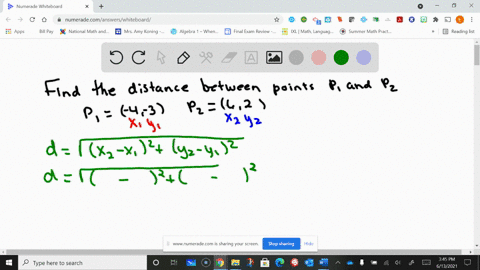 Numerade Whiteboard
numerade.com/answers/whiteboard/
Apps Bill Pay National Math and ... Mrs. Amy Koning - ... Algebra 1 - When... Final Exam Review -... IXL | Math, Languag... Summer Math Practi... Reading list
Find the distance between points P₁ and P₂
P₁ = (-4,-3) P₂ = (6,2)
x₁ y₁ x₂ y₂
d = √(x₂ - x₁)² + (y₂ - y₁)²
d = √( - )² + ( - )²
www.numerade.com is sharing your screen. Stop sharing Hide
Type here to search
3:45 PM
6/13/2021